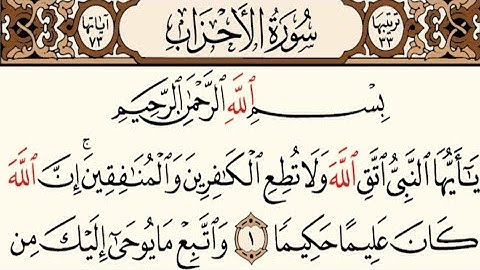 ترتيبها ٣٣ سُورَةُ الأَحْزَابِ آياتها ٧٣
بِسْمِ ٱللَّهِ ٱلرَّحْمَٰنِ ٱلرَّحِيمِ
يَٰٓأَيُّهَا ٱلنَّبِيُّ ٱتَّقِ ٱللَّهَ وَلَا تُطِعِ ٱلْكَٰفِرِينَ وَٱلْمُنَٰفِقِينَۚ إِنَّ ٱللَّهَ
كَانَ عَلِيمًا حَكِيمًا ١ وَٱتَّبِعْ مَا يُوحَىٰٓ إِلَيْكَ مِن